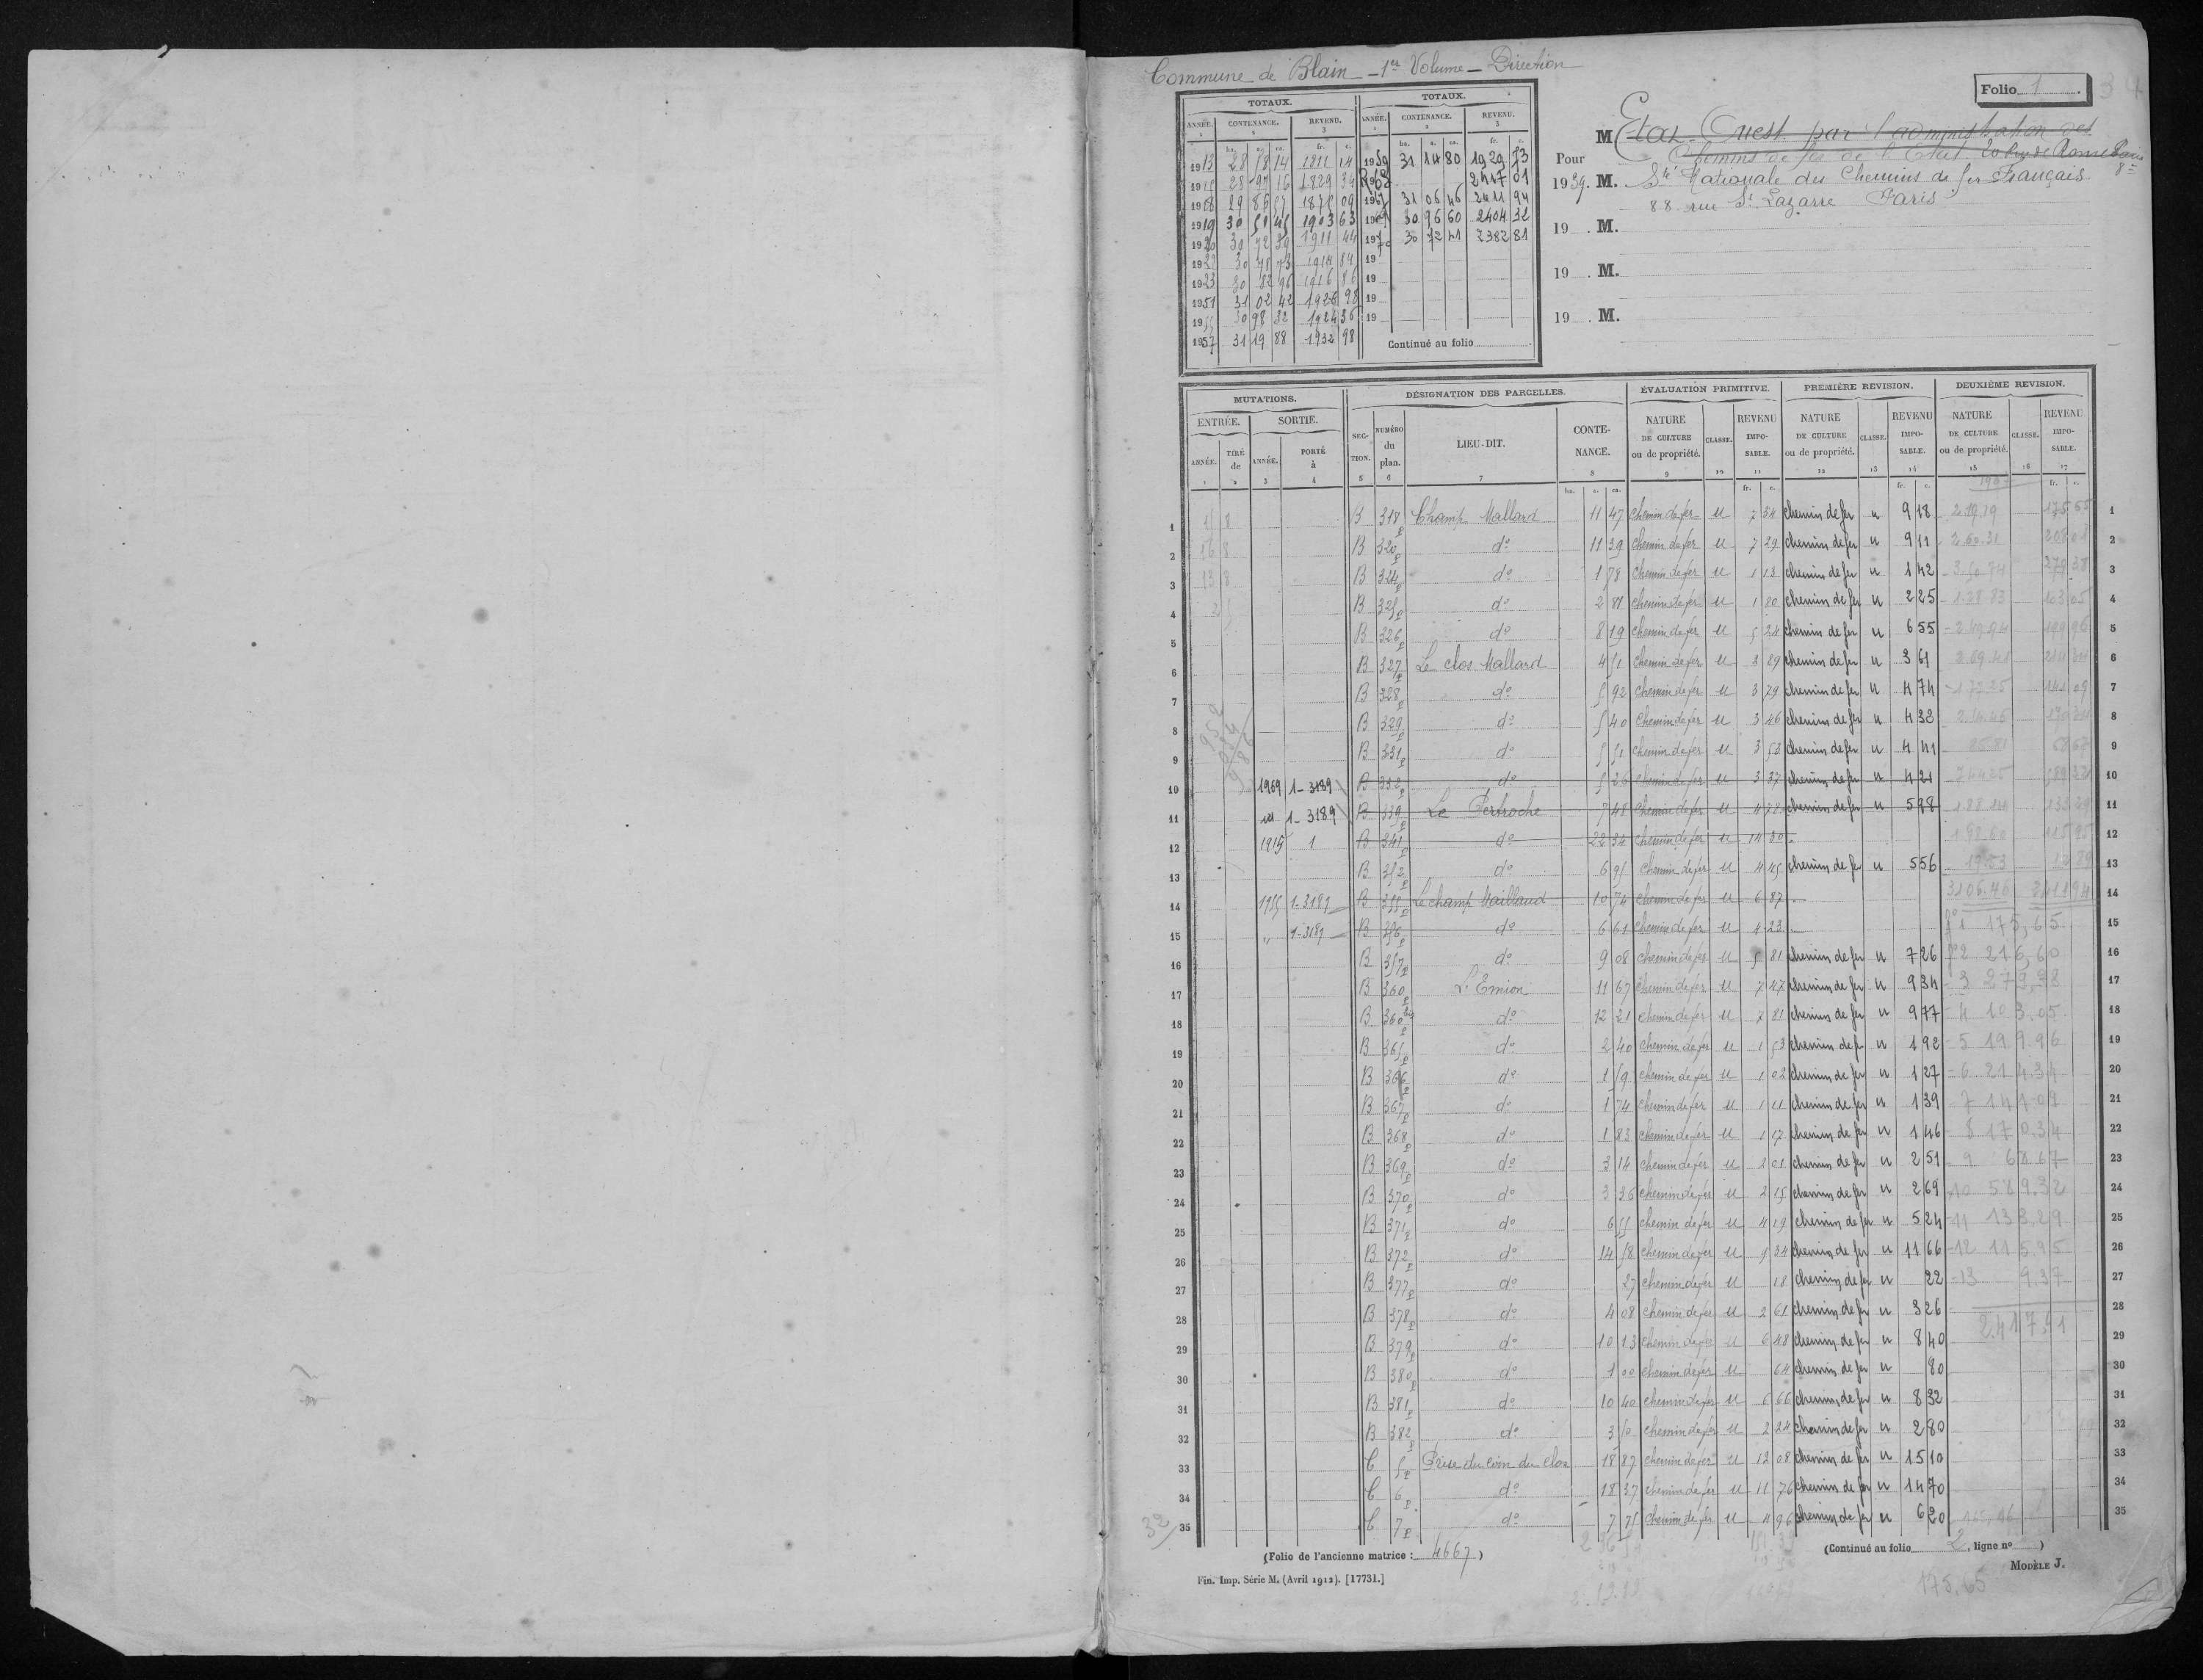 Commune de Blain - 1er Volume - Direction
Folio 1 .
TOTAUX. TOTAUX.
ANNÉE. CONTENANCE. REVENU. ANNÉE. CONTENANCE. REVENU.
1 2 3 1 2 3
ha. a. ca. fr. c. ha. a. ca. fr. c.
1913 28 18 14 1811 14 1959 31 14 80 1929 53
28 97 16 1829 34 2417 01
1918 29 85 57 1875 09 31 06 46 2411 94
1919 30 51 45 1903 63 1969 30 96 60 2404 32
1920 30 72 39 1911 44 1970 30 72 41 2382 81
1922 30 78 73 1914 84 19
1923 30 82 96 1916 86 19
1951 31 02 42 1926 98 19
1955 30 98 32 1924 36 19
1957 31 19 88 1932 98 Continué au folio
M Etat-Ouest par l'administration des
Pour Chemins de fer de l'Etat 20 Rue de Rome Paris 8e
1939. M. Sté Nationale des Chemins de fer Français
88 rue St Lazarre Paris
19 . M.
19 . M.
19 . M.
MUTATIONS. DÉSIGNATION DES PARCELLES. ÉVALUATION PRIMITIVE. PREMIÈRE REVISION. DEUXIÈME REVISION.
ENTRÉE. SORTIE. SECTION. NUMÉRO du plan. LIEU-DIT. CONTENANCE. NATURE DE CULTURE ou de propriété. CLASSE. REVENU IMPOSABLE. NATURE DE CULTURE ou de propriété. CLASSE. REVENU IMPOSABLE. NATURE DE CULTURE ou de propriété. CLASSE. REVENU IMPOSABLE.
ANNÉE. TIRÉ de ANNÉE. PORTÉ à
1 2 3 4 5 6 7 8 9 10 11 12 13 14 15 16 17
ha. a. ca. fr. c. fr. c. fr. c.
1 B 318p Champ Mallard 11 47 Chemin de fer u 7 34 chemin de fer u 9 18 175 65 1
2 B 320p do 11 39 Chemin de fer u 7 29 chemin de fer u 9 11 2 60 31 2
3 B 324p do 1 78 Chemin de fer u 1 13 chemin de fer u 1 42 279 38 3
4 B 325p do 2 81 Chemin de fer u 1 80 chemin de fer u 2 25 1 28 83 103 05 4
5 B 326p do 8 19 Chemin de fer u 5 24 chemin de fer u 6 55 2 49 94 199 96 5
6 B 327p Le clos Mallard 4 51 Chemin de fer u 2 89 chemin de fer u 3 61 214 34 6
7 B 328p do 5 92 Chemin de fer u 3 79 chemin de fer u 4 74 141 09 7
8 B 329p do 5 40 Chemin de fer u 3 46 chemin de fer u 4 32 170 34 8
9 B 331p do 5 51 Chemin de fer u 3 53 chemin de fer u 4 41 85 81 68 67 9
10 1969 1-3189 B 332p do 5 26 Chemin de fer u 3 37 chemin de fer u 4 21 589 32 10
11 id 1-3189 B 339p Le Pertroche 7 48 Chemin de fer u 4 78 chemin de fer u 5 98 133 29 11
12 1915 1 B 341p do 22 34 Chemin de fer u 14 30 115 95 12
13 B 352p do 6 95 Chemin de fer u 4 45 chemin de fer u 5 56 13
14 1955 1-3189 B 355p Le champ Maillaud 10 74 Chemin de fer u 6 87 3106.46 2411 94 14
15 " 1-3189 B 356p do 6 61 Chemin de fer u 4 23 fo 1 175,65 15
16 B 357p do 9 08 Chemin de fer u 5 81 chemin de fer u 7 26 fo 2 216,60 16
17 B 360p L'Emion 11 67 Chemin de fer u 7 47 chemin de fer u 9 34 - 3 279,38 17
18 B 360bis p do 12 21 Chemin de fer u 7 81 chemin de fer u 9 77 - 4 103,05 18
19 B 365p do 2 40 Chemin de fer u 1 53 chemin de fer u 1 92 - 5 199.96 19
20 B 366p do 1 59 Chemin de fer u 1 02 chemin de fer u 1 27 - 6 214.34 20
21 B 367p do 1 74 Chemin de fer u 1 11 chemin de fer u 1 39 - 7 141 09 21
22 B 368p do 1 83 Chemin de fer u 1 17 chemin de fer u 1 46 - 8 170.34 22
23 B 369p do 3 14 Chemin de fer u 2 01 chemin de fer u 2 51 - 9 68.67 23
24 B 370p do 3 36 Chemin de fer u 2 15 chemin de fer u 2 69 - 10 589.32 24
25 B 371p do 6 55 chemin de fer u 4 19 chemin de fer u 5 24 - 11 133,29 25
26 B 372p do 14 58 Chemin de fer u 9 34 chemin de fer u 11 66 - 12 115.95 26
27 B 377p do 27 Chemin de fer u 18 chemin de fer u 22 - 13 9,37 27
28 B 378p do 4 08 Chemin de fer u 2 61 chemin de fer u 3 26 28
29 B 379p do 10 13 Chemin de fer u 6 48 chemin de fer u 8 40 29
30 B 380p do 1 00 Chemin de fer u 64 chemin de fer u 80 30
31 B 381p do 10 40 Chemin de fer u 6 66 chemin de fer u 8 32 31
32 B 382p do 3 50 Chemin de fer u 2 24 chemin de fer u 2 80 32
33 C 5p Prise du coin du clos 18 87 Chemin de fer u 12 08 chemin de fer u 15 10 33
34 C 6p do 18 37 Chemin de fer u 11 76 chemin de fer u 14 70 34
35 C 7p do 7 75 Chemin de fer u 4 96 chemin de fer u 6 20 35
(Folio de l'ancienne matrice : 4667 ) (Continué au folio 2 , ligne no )
Fin. Imp. Série M. (Avril 1912). [17731.] MODÈLE J.
175,65